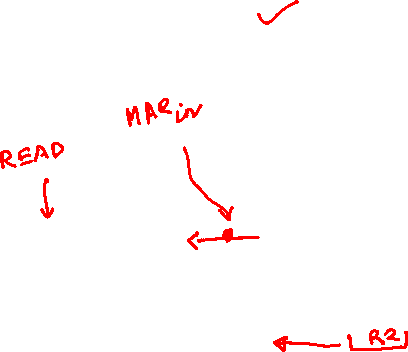 MARin
READ
R2